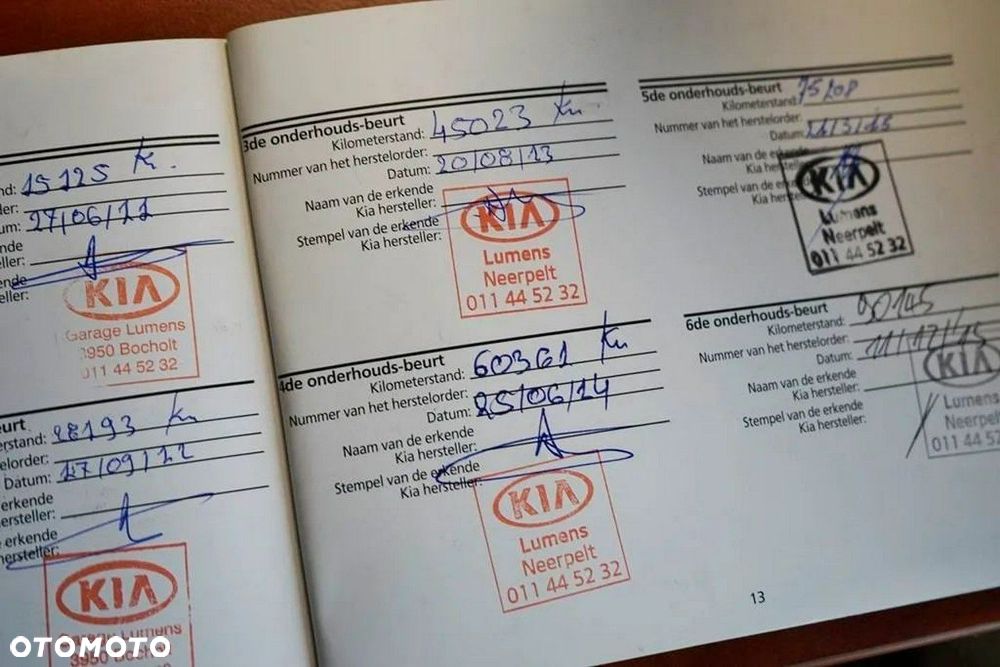 nd: 15125 Km.
der:
um: 27/06/11
ende
eller:
ende
eller:
KIA
Garage Lumens
3950 Bocholt
011 44 52 32
eurt
erstand: 28193 Km
elorder:
Datum: 17/09/12
erkende
ersteller:
erkende
hersteller:
KIA
Garage Lumens
3950 Bocholt
3de onderhouds-beurt
Kilometerstand: 45023 Km
Nummer van het herstelorder:
Datum: 20/08/13
Naam van de erkende
Kia hersteller:
Stempel van de erkende
Kia hersteller:
KIA
Lumens
Neerpelt
011 44 52 32
4de onderhouds-beurt
Kilometerstand: 60361 Km
Nummer van het herstelorder:
Datum: 25/06/14
Naam van de erkende
Kia hersteller:
Stempel van de erkende
Kia hersteller:
KIA
Lumens
Neerpelt
011 44 52 32
5de onderhouds-beurt
Kilometerstand: 75208
Nummer van het herstelorder:
Datum: 11/3/15
Naam van de erkende
Kia hersteller:
Stempel van de erkende
Kia hersteller:
KIA
Lumens
Neerpelt
011 44 52 32
6de onderhouds-beurt
Kilometerstand: 90145
Nummer van het herstelorder:
Datum: 11/12/15
Naam van de erkende
Kia hersteller:
Stempel van de erkende
Kia hersteller:
KIA
Lumens
Neerpelt
011 44 52
13
OTOMOTO